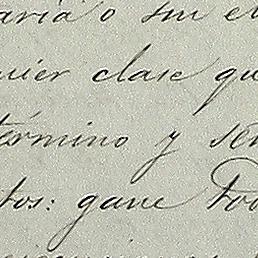 aria o sin e
uier clase qu
término y se
tos: gane Tod